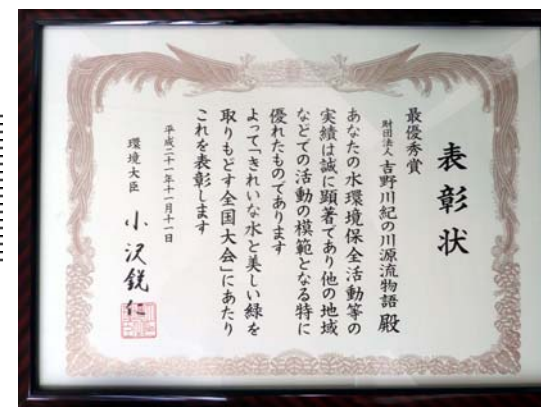 表彰状
最優秀賞
財団法人吉野川紀の川源流物語 殿
あなたの水環境保全活動等の
実績は誠に顕著であり他の地域
などでの活動の模範となる特に
優れたものであります
よって「きれいな水と美しい緑を
取りもどす全国大会」にあたり
これを表彰します
平成二十一年十一月十一日
環境大臣 小沢鋭仁